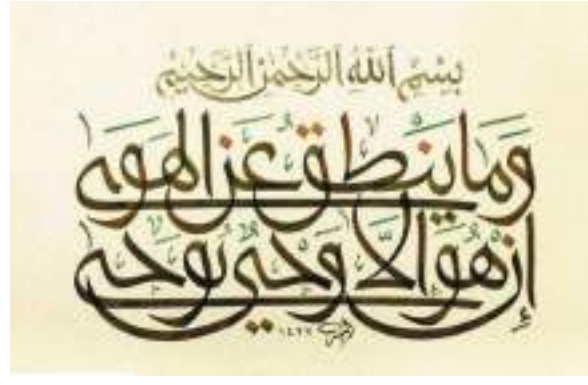 بِسْمِ اللَّهِ الرَّحْمَٰنِ الرَّحِيمِ
وَمَا يَنطِقُ عَنِ الْهَوَىٰ
إِنْ هُوَ إِلَّا وَحْيٌ يُوحَىٰ